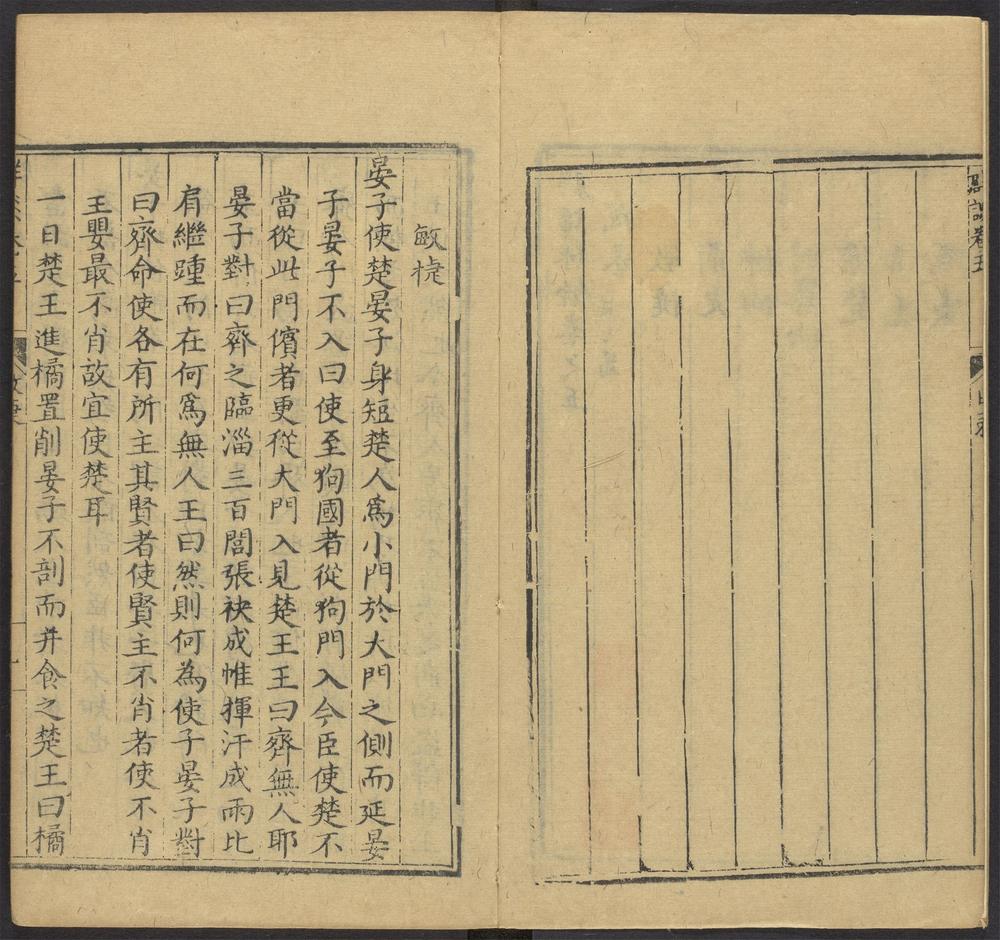 卷五
目录
敏捷
晏子使楚晏子身短楚人爲小門於大門之側而延晏
子晏子不入曰使至狗國者從狗門入今臣使楚不
當從此門儐者更從大門入見楚王王曰齊無人耶
晏子對曰齊之臨淄三百閭張袂成帷揮汗成雨比
肩繼踵而在何爲無人王曰然則何為使子晏子對
曰齊命使各有所主其賢者使賢主不肖者使不肖
王嬰最不肖故宜使楚耳
一日楚王進橘置削晏子不剖而并食之楚王曰橘